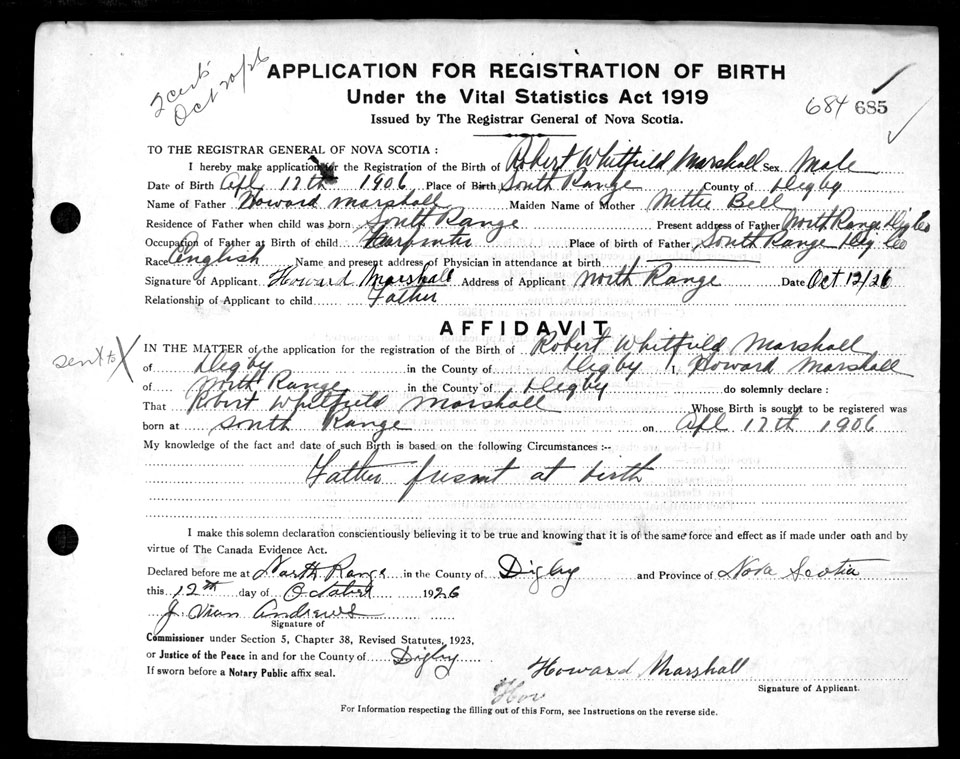 2 certs
Oct 20/26
APPLICATION FOR REGISTRATION OF BIRTH
Under the Vital Statistics Act 1919
Issued by The Registrar General of Nova Scotia.
684 685
TO THE REGISTRAR GENERAL OF NOVA SCOTIA:
I hereby make application for the Registration of the Birth of Robert Whitfield Marshall Sex Male
Date of Birth Apl 17th 1906 Place of Birth South Range County of Digby
Name of Father Howard Marshall Maiden Name of Mother Nettie Bell
Residence of Father when child was born South Range Present address of Father North Range Dig Co
Occupation of Father at Birth of child Carpenter Place of birth of Father South Range Dig. Co
Race English Name and present address of Physician in attendance at birth
Signature of Applicant Howard Marshall Address of Applicant North Range Date Oct 12/26
Relationship of Applicant to child Father
AFFIDAVIT
sent to X
IN THE MATTER of the application for the registration of the Birth of Robert Whitfield Marshall
of Digby in the County of Digby I, Howard Marshall
of North Range in the County of Digby do solemnly declare:
That Robert Whitfield Marshall Whose Birth is sought to be registered was
born at South Range on Apl 17th 1906
My knowledge of the fact and date of such Birth is based on the following Circumstances:--
Father present at birth
I make this solemn declaration conscientiously believing it to be true and knowing that it is of the same force and effect as if made under oath and by
virtue of The Canada Evidence Act.
Declared before me at North Range in the County of Digby and Province of Nova Scotia
this 12th day of October 1926
J. Vian Andrews
Signature of
Commissioner under Section 5, Chapter 38, Revised Statutes, 1923,
or Justice of the Peace in and for the County of Digby
If sworn before a Notary Public affix seal.
Howard Marshall
How
Signature of Applicant.
For Information respecting the filling out of this Form, see Instructions on the reverse side.